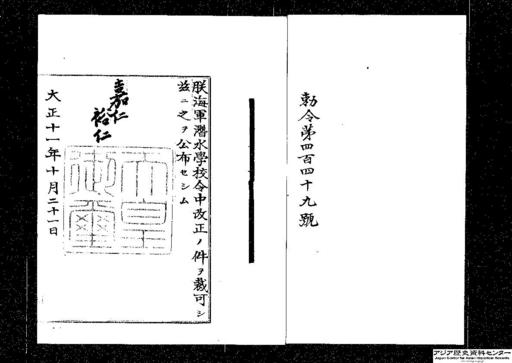 勅令第四百四十九號
朕海軍潛水學校令中改正ノ件ヲ裁可シ
茲ニ之ヲ公布セシム
嘉仁
裕仁
天皇
御璽
大正十一年十月二十一日
アジア歴史資料センター
Japan Center for Asian Historical Records